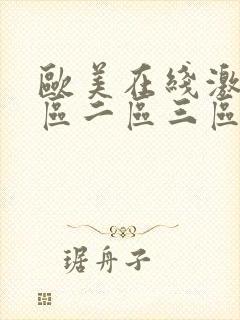 歐美在綫激
區二區三區
琚舟子